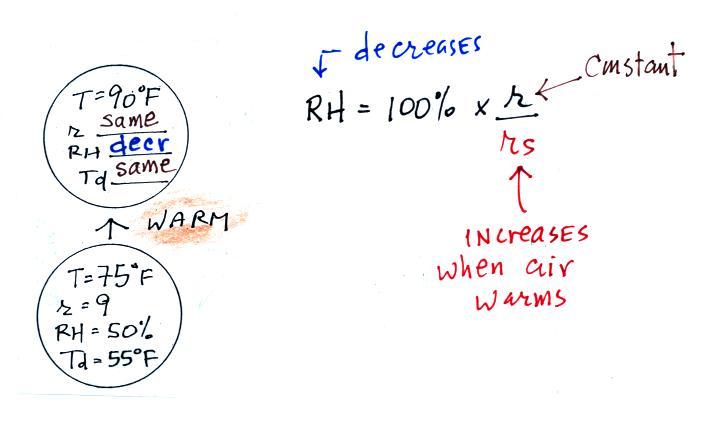 decreases
RH = 100% x r
rs
Cmstant
INCreASES
when air
warms
T=90°F
r same
RH decr
Td same
WARM
T=75°F
r = 9
RH = 50%
Td = 55°F